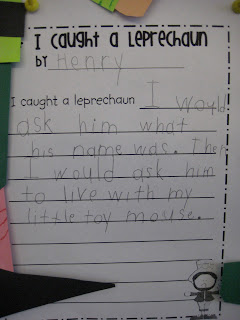 I caught a leprechaun
by Henry
I caught a leprechaun I would
ask him what
his name was. Then
I would ask him
to live with my
little toy mouse.